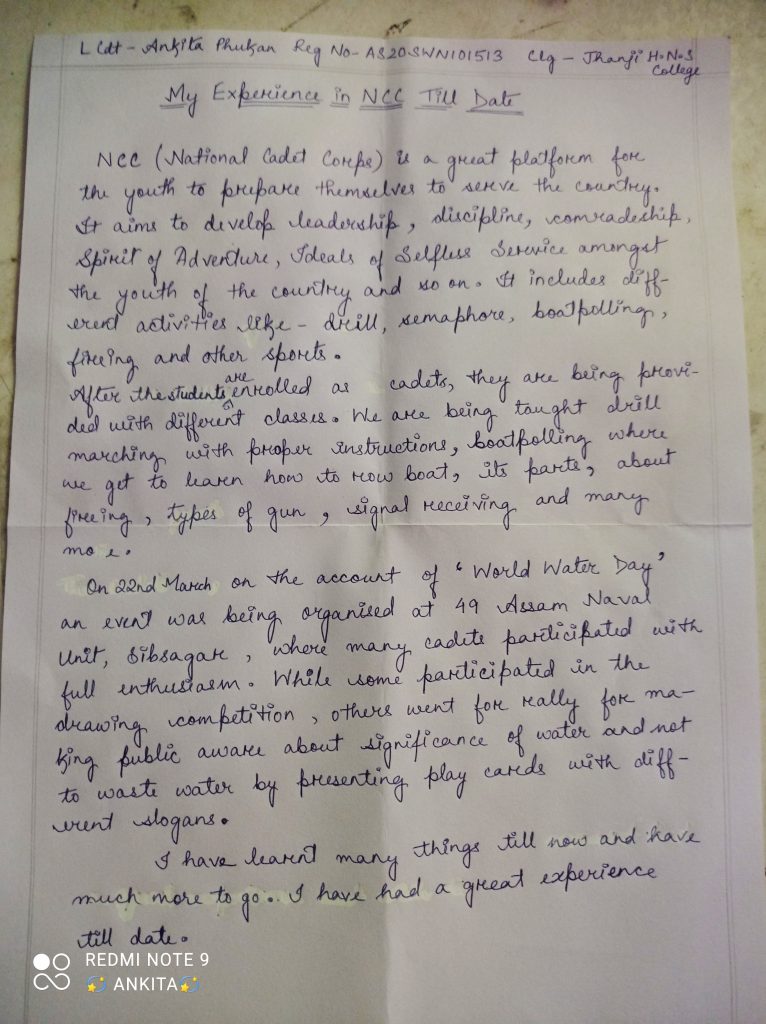 L Cdt - Ankita Phukan Reg No- AS20SWN101513 Clg - Jhanji H.N.S College
My Experience in NCC Till Date
NCC (National Cadet Corps) is a great platform for
the youth to prepare themselves to serve the country.
It aims to develop leadership, discipline, comradeship,
Spirit of Adventure, Ideals of Selfless Service amongst
the youth of the country and so on. It includes diff-
erent activities like - drill, semaphore, boatpolling,
fireing and other sports.
After the students are enrolled as cadets, they are being provi-
ded with different classes. We are being taught drill
marching with proper instructions, boatpolling where
we get to learn how to row boat, its parts, about
fireing, types of gun, signal receiving and many
more.
On 22nd March on the account of 'World Water Day'
an event was being organised at 49 Assam Naval
Unit, Sibsagar, where many cadets participated with
full enthusiasm. While some participated in the
drawing competition, others went for rally for ma-
king public aware about significance of water and not
to waste water by presenting play cards with diff-
erent slogans.
I have learnt many things till now and have
much more to go. I have had a great experience
till date.
REDMI NOTE 9
💫 ANKITA💫